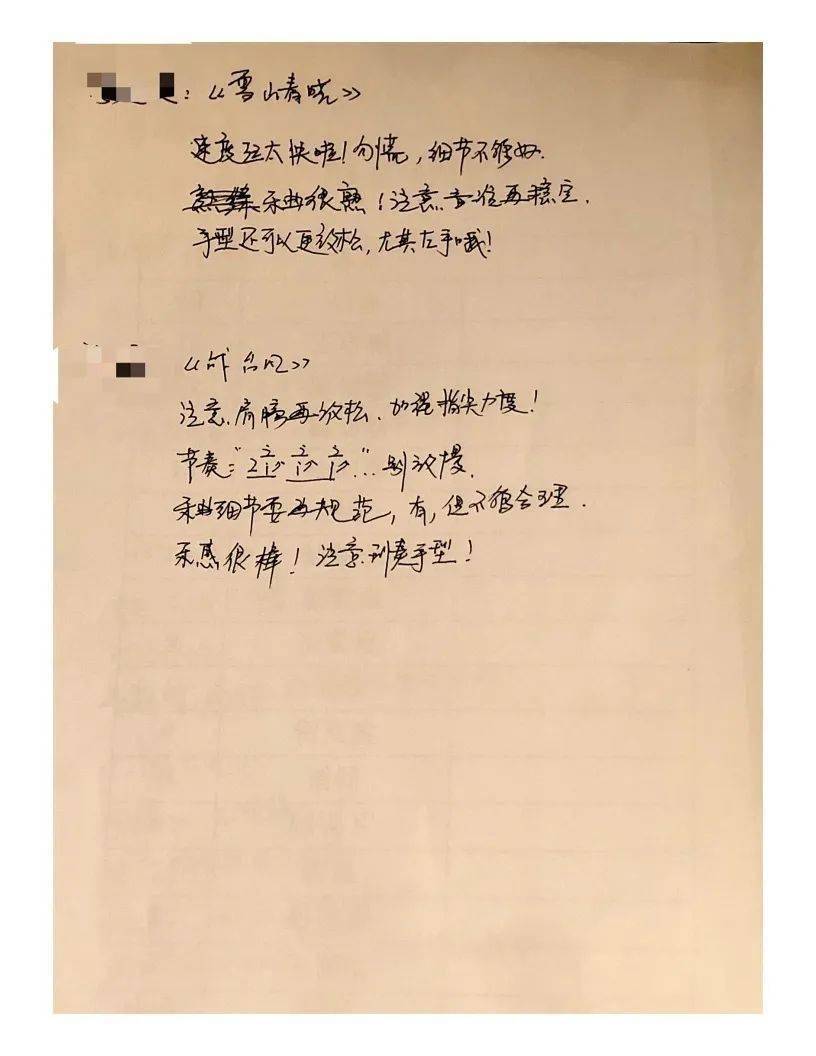 ：《雪山春晓》
速度还太快啦！勿慌，细节不够好.
乐曲很熟！注意音准再稳定.
手型还可以更放松，尤其左手哦！
《战台风》
注意肩膀再放松、加强指尖力度！
节奏："" … 别放慢.
乐曲细节要再规范，有，但不够合理.
乐感很棒！注意到奏手型！